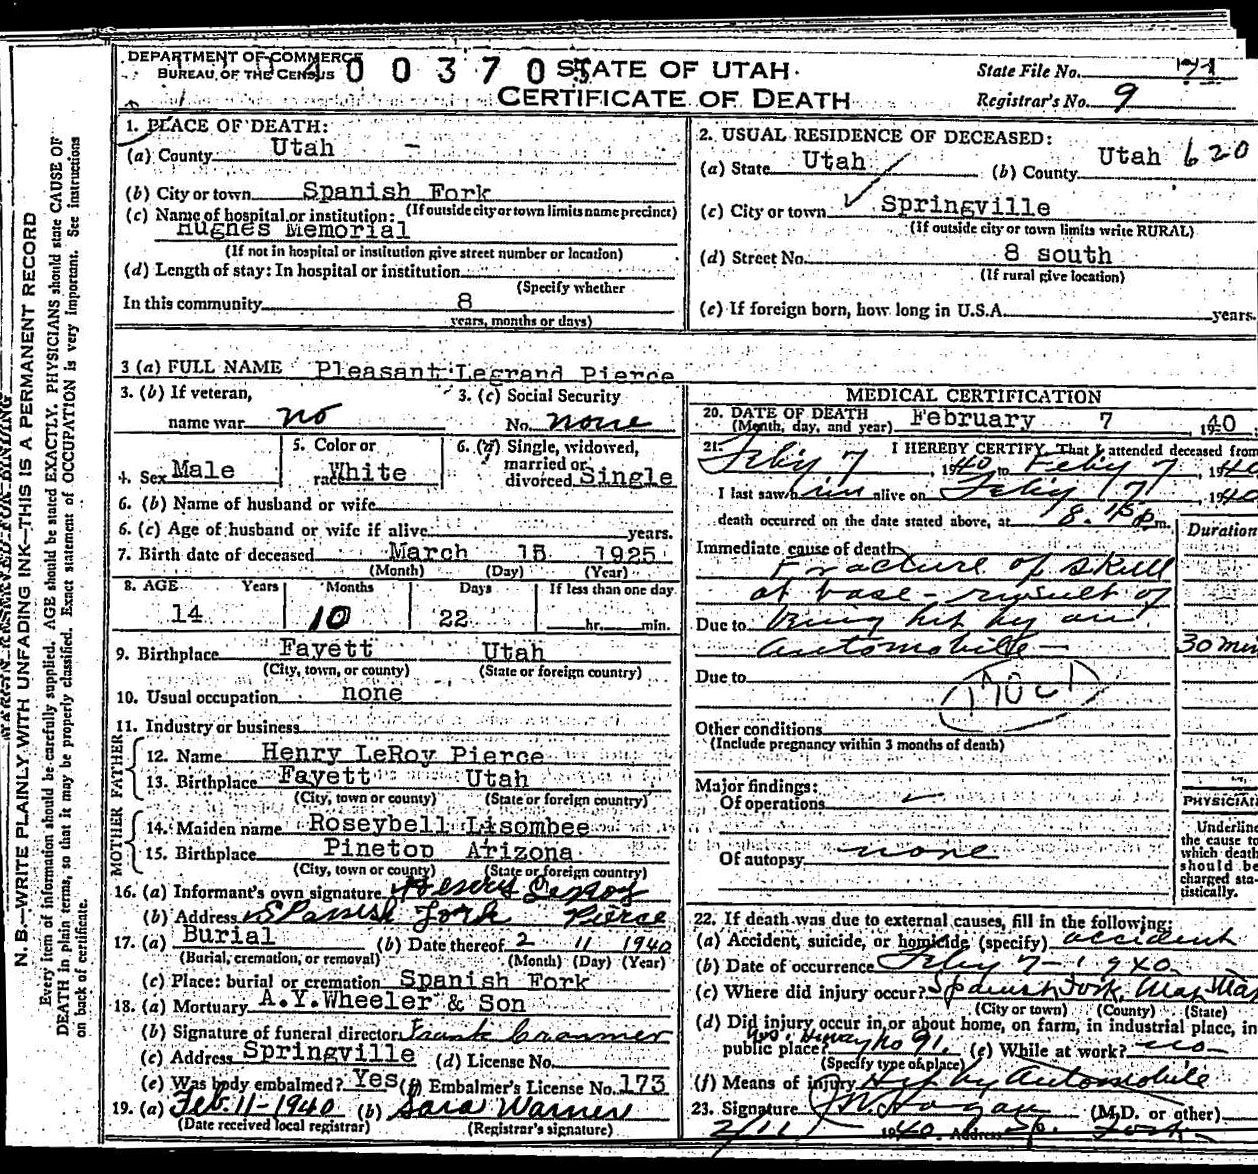 DEPARTMENT OF COMMERCE
BUREAU OF THE CENSUS
4 0 0 3 7 0
STATE OF UTAH
CERTIFICATE OF DEATH
State File No.
Registrar's No. 9
1. PLACE OF DEATH:
(a) County Utah
(b) City or town Spanish Fork
(c) Name of hospital or institution: (If outside city or town limits name precinct)
Hughes Memorial
(If not in hospital or institution give street number or location)
(d) Length of stay: In hospital or institution
(Specify whether
In this community 8
years, months or days)
2. USUAL RESIDENCE OF DECEASED:
(a) State Utah (b) County Utah 620
(c) City or town Springville
(If outside city or town limits write RURAL)
(d) Street No. 8 south
(If rural give location)
(e) If foreign born, how long in U.S.A. years.
3 (a) FULL NAME Pleasant Legrand Pierce
3. (b) If veteran, name war no
3. (c) Social Security No. none
4. Sex Male
5. Color or race White
6. (a) Single, widowed, married or divorced Single
6. (b) Name of husband or wife
6. (c) Age of husband or wife if alive years.
7. Birth date of deceased March 15 1925
(Month) (Day) (Year)
8. AGE Years Months Days If less than one day
14 10 22 hr. min.
9. Birthplace Fayett Utah
(City, town, or county) (State or foreign country)
10. Usual occupation none
11. Industry or business
FATHER
12. Name Henry LeRoy Pierce
13. Birthplace Fayett Utah
(City, town or county) (State or foreign country)
MOTHER
14. Maiden name Roseybell Lisombee
15. Birthplace Pinetop Arizona
(City, town or county) (State or foreign country)
16. (a) Informant's own signature Henry Leroy
(b) Address Spanish Fork Pierce
17. (a) Burial (b) Date thereof 2 11 1940
(Burial, cremation, or removal) (Month) (Day) (Year)
(c) Place: burial or cremation Spanish Fork
18. (a) Mortuary A.Y.Wheeler & Son
(b) Signature of funeral director Frank Cranmer
(c) Address Springville (d) License No.
(e) Was body embalmed? Yes (f) Embalmer's License No. 173
19. (a) Feb. 11-1940 (b) Sara Warner
(Date received local registrar) (Registrar's signature)
MEDICAL CERTIFICATION
20. DATE OF DEATH February 7, 1940
(Month, day, and year)
21. I HEREBY CERTIFY, That I attended deceased from
Feby 7, 1940 to Feby 7, 1940
I last saw him alive on Feby 7, 1940
death occurred on the date stated above, at 8.15 P m.
Duration
Immediate cause of death
Fracture of skull
at base - result of
Due to being hit by an
automobile - 30 min
Due to
170c
Other conditions
(Include pregnancy within 3 months of death)
Major findings:
Of operations
Of autopsy none
PHYSICIAN
Underline
the cause to
which death
should be
charged sta-
tistically.
22. If death was due to external causes, fill in the following:
(a) Accident, suicide, or homicide (specify) accident
(b) Date of occurrence Feby 7-1940
(c) Where did injury occur? Spanish Fork,
(City or town) (County) (State)
(d) Did injury occur in or about home, on farm, in industrial place, in
public place? Hiway No 91. (e) While at work? no
(Specify type of place)
(f) Means of injury Hit by Automobile
23. Signature (M.D. or other)
2/11 1940 Address Sp. Fork
N.B.—WRITE PLAINLY, WITH UNFADING INK—THIS IS A PERMANENT RECORD
Every item of information should be carefully supplied. AGE should be stated EXACTLY. PHYSICIANS should state CAUSE OF
DEATH in plain terms, so that it may be properly classified. Exact statement of OCCUPATION is very important. See instructions
on back of certificate.
MARGIN RESERVED FOR BINDING